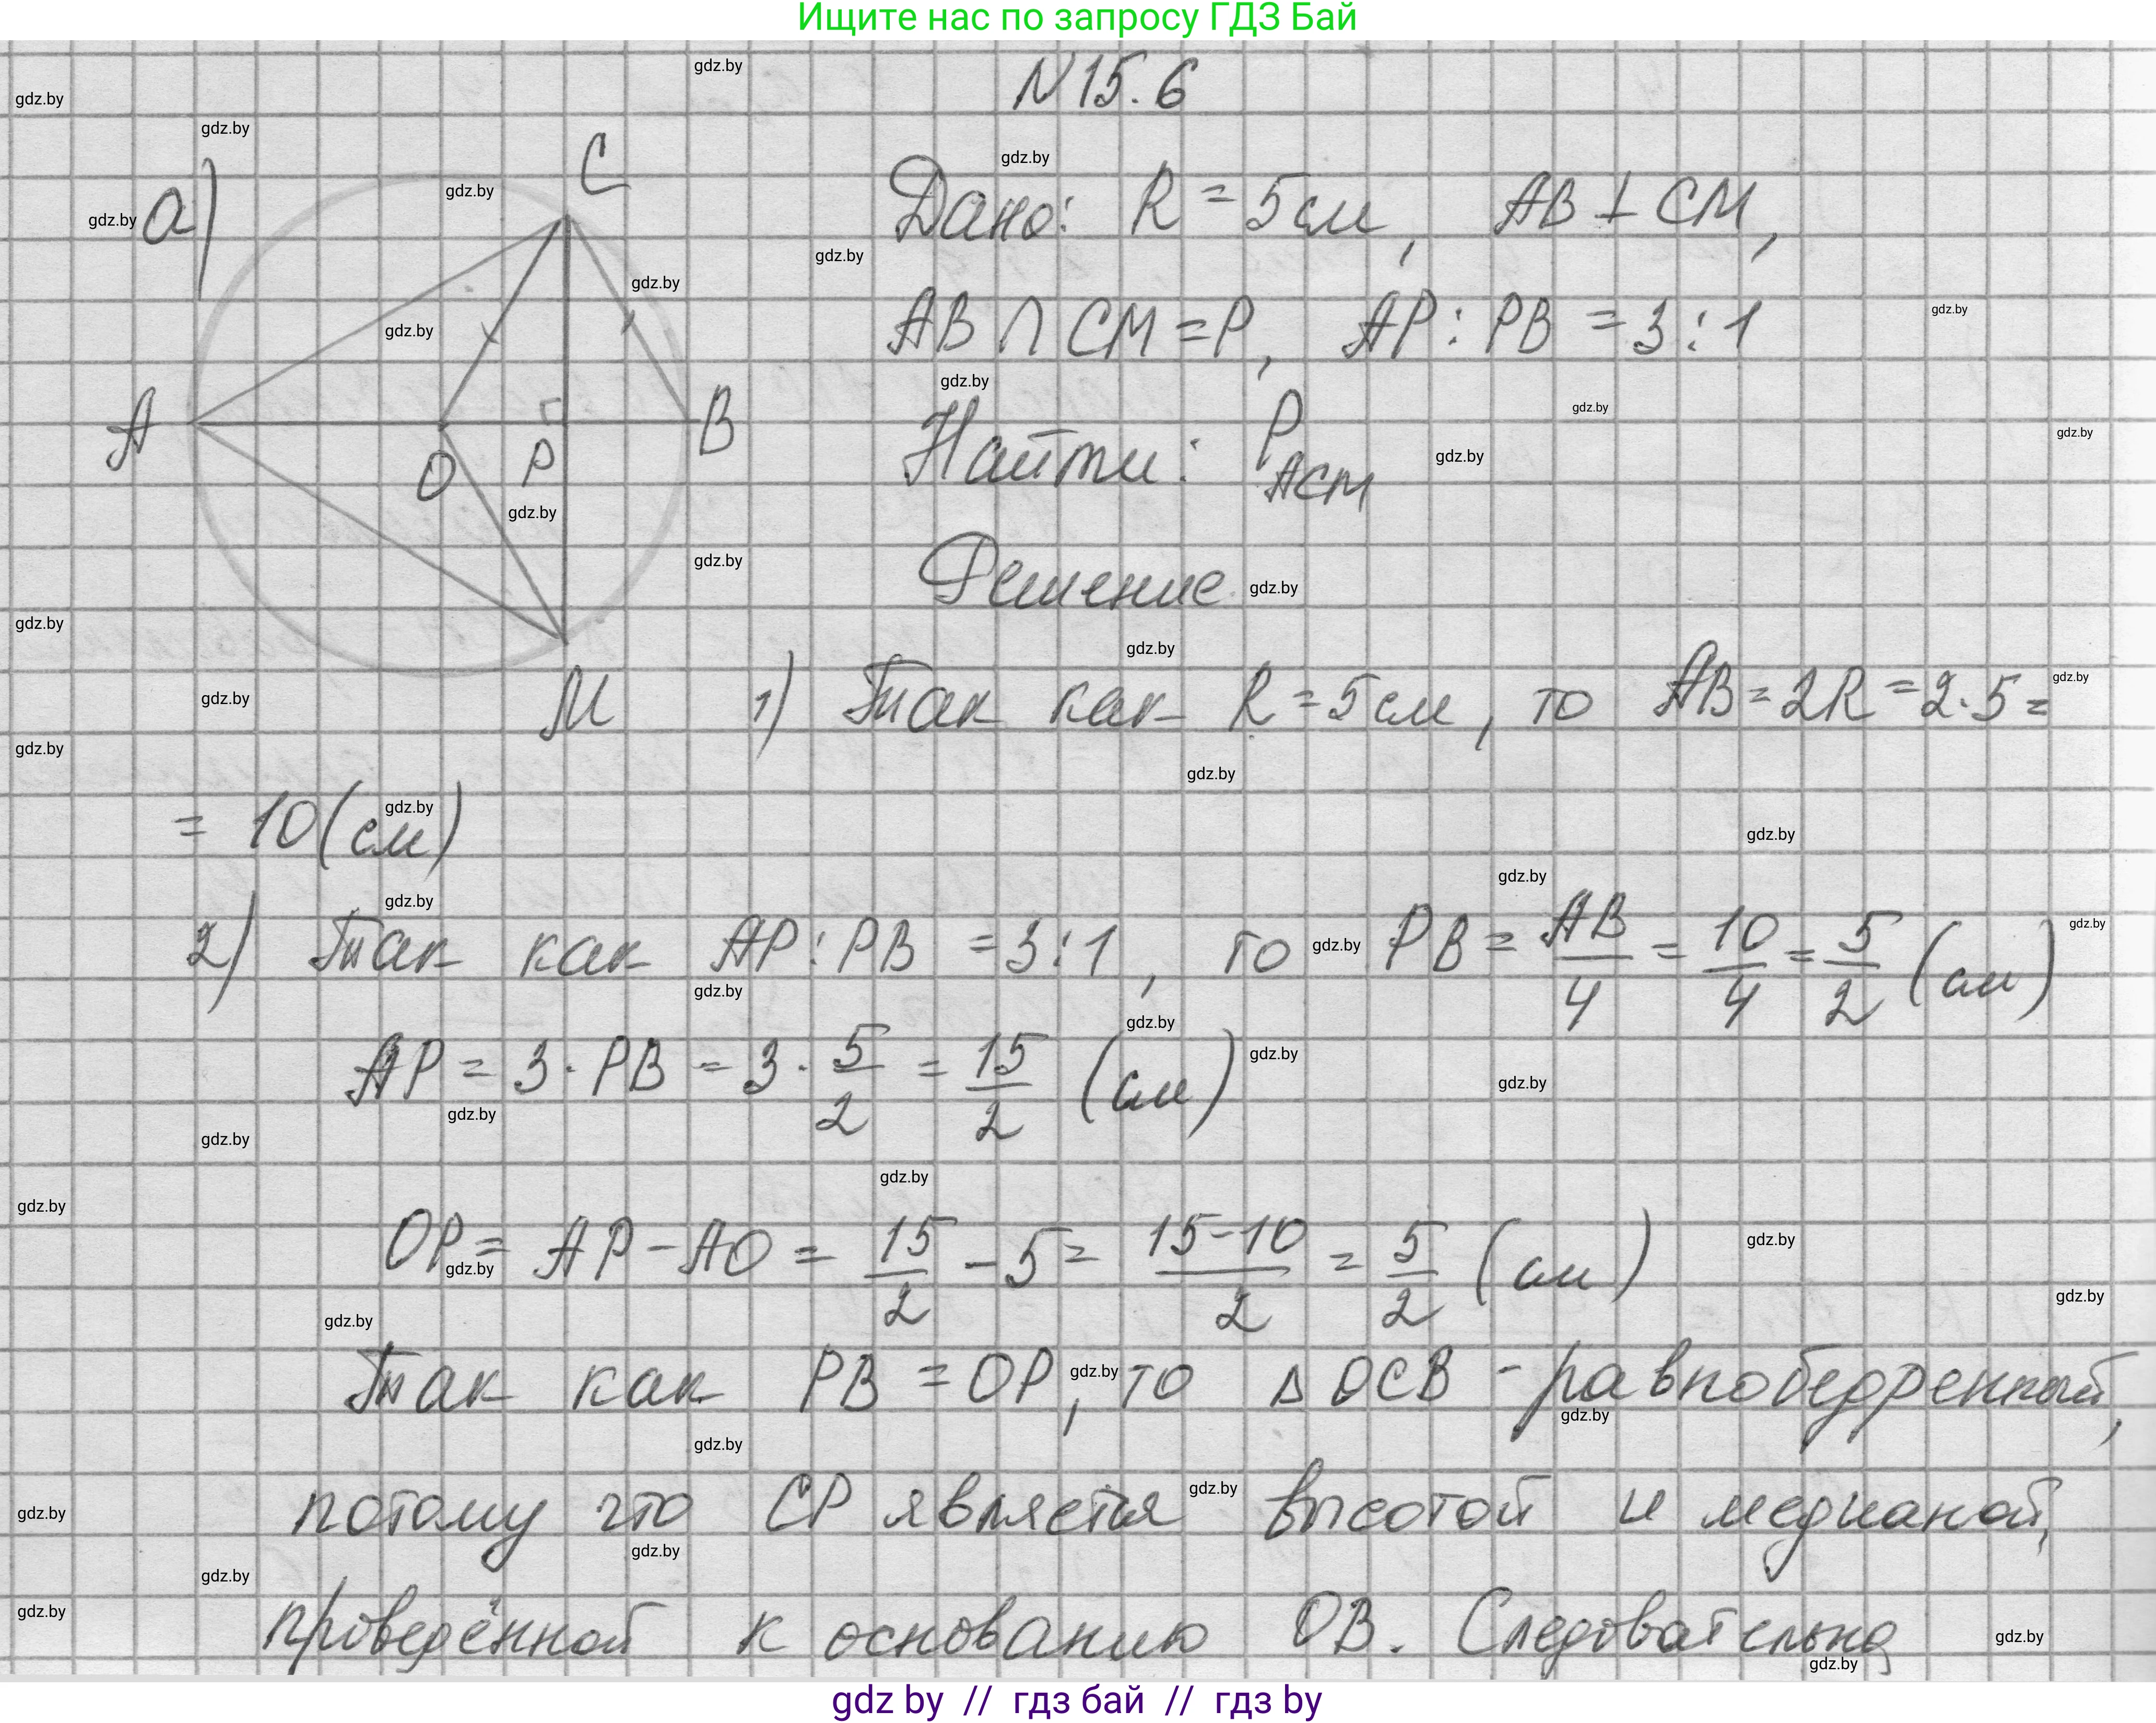 Ищите нас по запросу ГДЗ Бай
N 15.6
а)
C
A
O
P
B
M
Дано: R = 5 см, AB ⊥ CM,
AB ∩ CM = P, AP : PB = 3 : 1
Найти: P_ACM
Решение
1) Так как R = 5 см, то AB = 2R = 2·5 =
= 10 (см)
2) Так как AP : PB = 3 : 1, то PB = AB/4 = 10/4 = 5/2 (см)
AP = 3 · PB = 3 · 5/2 = 15/2 (см)
OP = AP − AO = 15/2 − 5 = (15−10)/2 = 5/2 (см)
Так как PB = OP, то Δ OCB - равнобедренный,
потому что CP является высотой и медианой,
проведённой к основанию OB. Следовательно
gdz.by
gdz by // гдз бай // гдз by